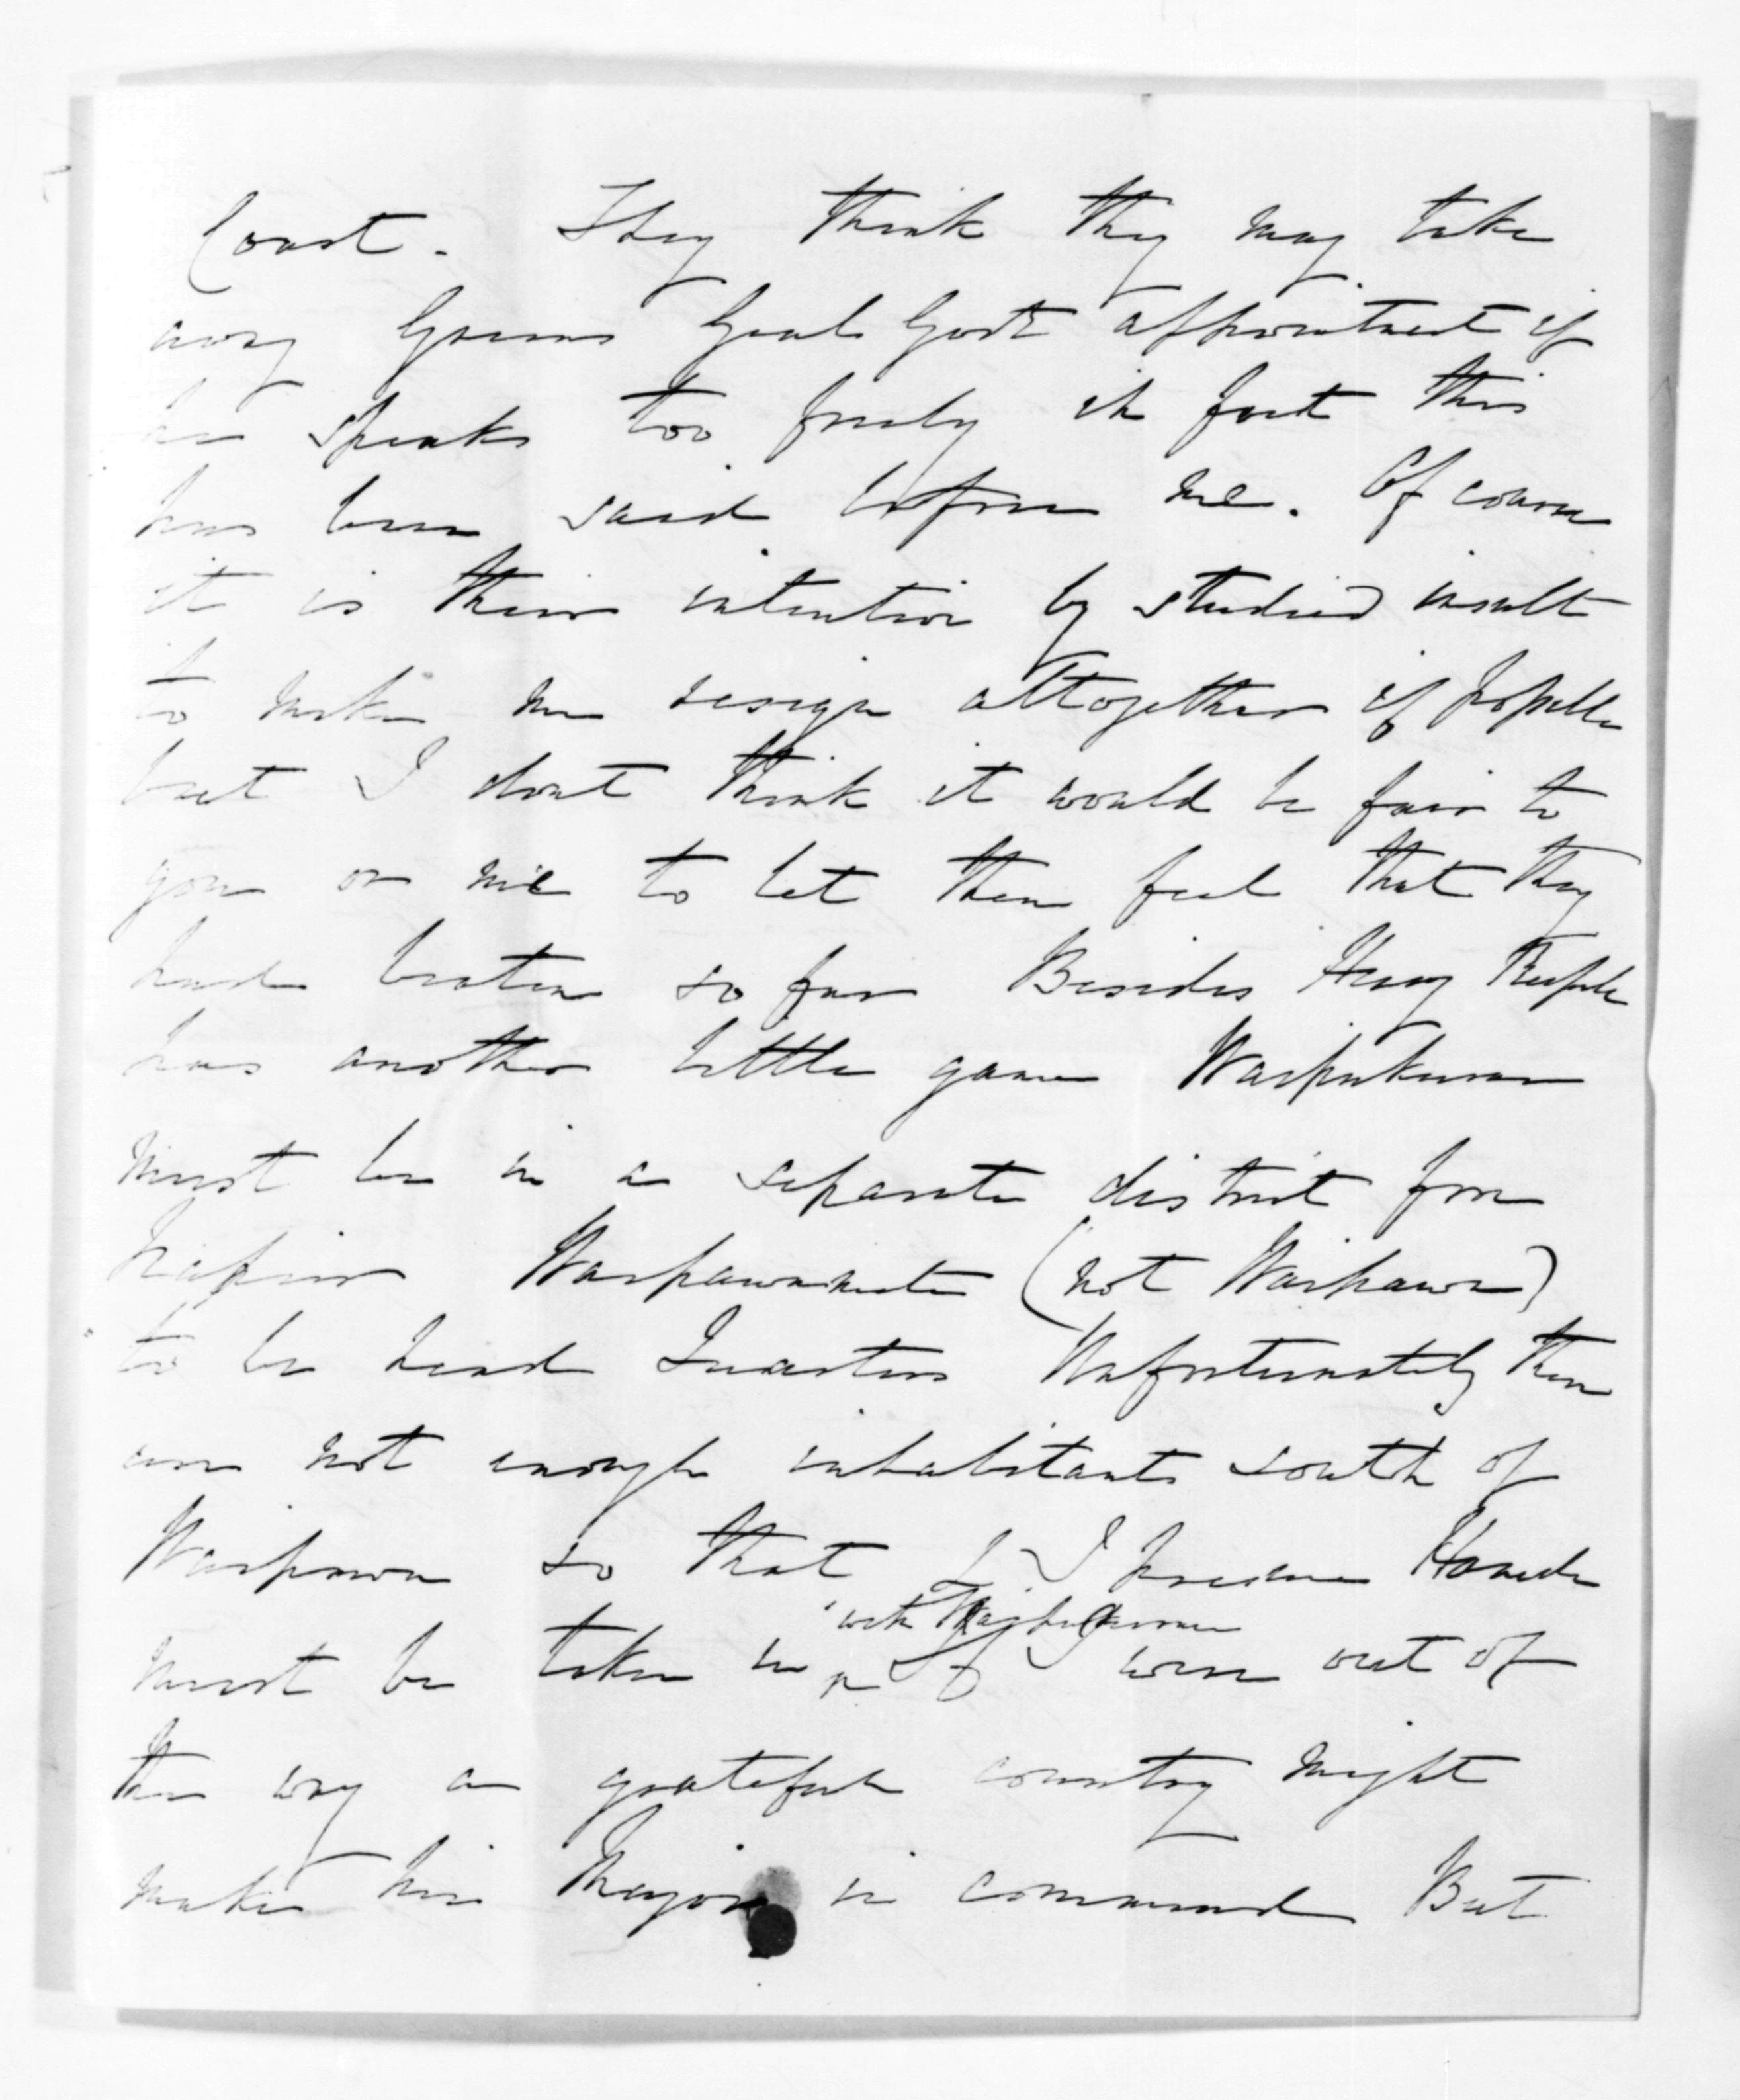 Coast. They think they may take
away Greens Genl Govt appointment if
he speaks too freely in fact this
has been said before me. Of course
it is their intention by studied insult
to make me resign altogether if possible
but I dont think it would be fair to
you or me to let them feel that they
had beaten so far Besides Henry
has another little game Waipukurau
must be in a separate district from
Napier Waipawamate (not Waipawa)
to be head Quarters Unfortunately there
are not enough inhabitants south of
Waipawa so that I presume
with Waipukurau
must be taken in If I were out of
the way a grateful country might
make him Major in command But